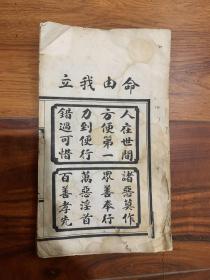 命由我立
人在世間
方便第一
力到便行
錯過可惜
諸惡莫作
眾善奉行
萬惡淫首
百善孝先